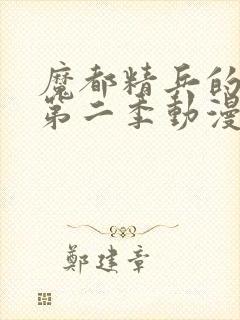 魔都精兵的
第二季動漫
鄭建章